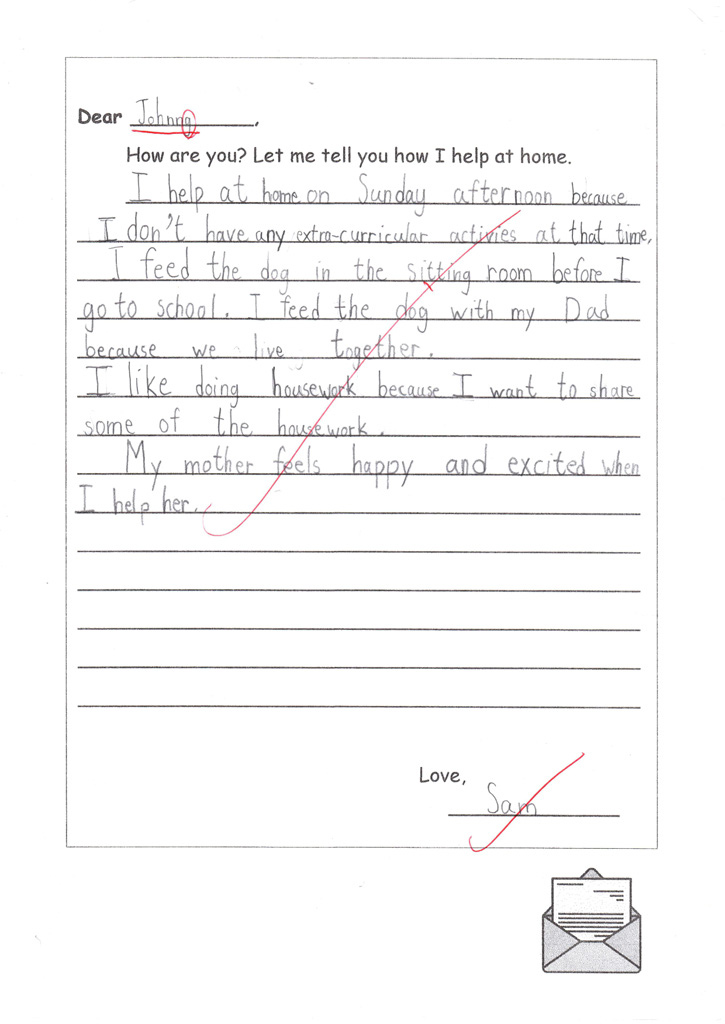 Dear Johnny,
How are you? Let me tell you how I help at home.
I help at home on Sunday afternoon because
I don't have any extra-curricular activies at that time.
I feed the dog in the sitting room before I
go to school. I feed the dog with my Dad
because we live together.
I like doing housework because I want to share
some of the housework.
My mother feels happy and excited when
I help her.
Love,
Sam